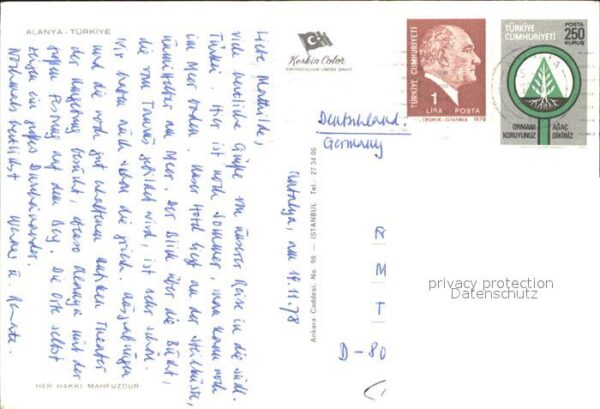 ALANYA - TÜRKİYE
Keskin Color
KARTPOSTALCILIK LİMİTED ŞİRKETİ
TÜRKİYE CUMHURİYETİ
1
LİRA POSTA
1978
TÜRKİYE
CUMHURİYETİ
POSTA
250
KURUŞ
ORMANI
KORUYUNUZ
AĞAÇ
DİKİNİZ
Deutschland
Germany
Antalya, am 17.11.78
Liebe Mathilde,
viele herzliche Grüße von unserer Reise in die südl.
Türkei. Hier ist noch Sommer, man kann noch
im Meer baden. Unser Hotel liegt an der Steilküste,
unmittelbar am Meer. Der Blick über die Bucht,
die vom Taurus gebildet wird, ist sehr schön.
Wir haben auch schon die griech. Ausgrabungen
und die noch gut erhaltenen antiken Theater
der Umgebung besucht, ebenso Alanya mit der
großen Festung auf dem Berg. Die Orte selbst
zeigen ein großes Durcheinander.
Nochmals herzlichst Werner u. Renate.
Ankara Caddesi, No. 98 - İSTANBUL Tel.: 27 34 06
A
M
T
D-80
HER HAKKI MAHFUZDUR
privacy protection
Datenschutz